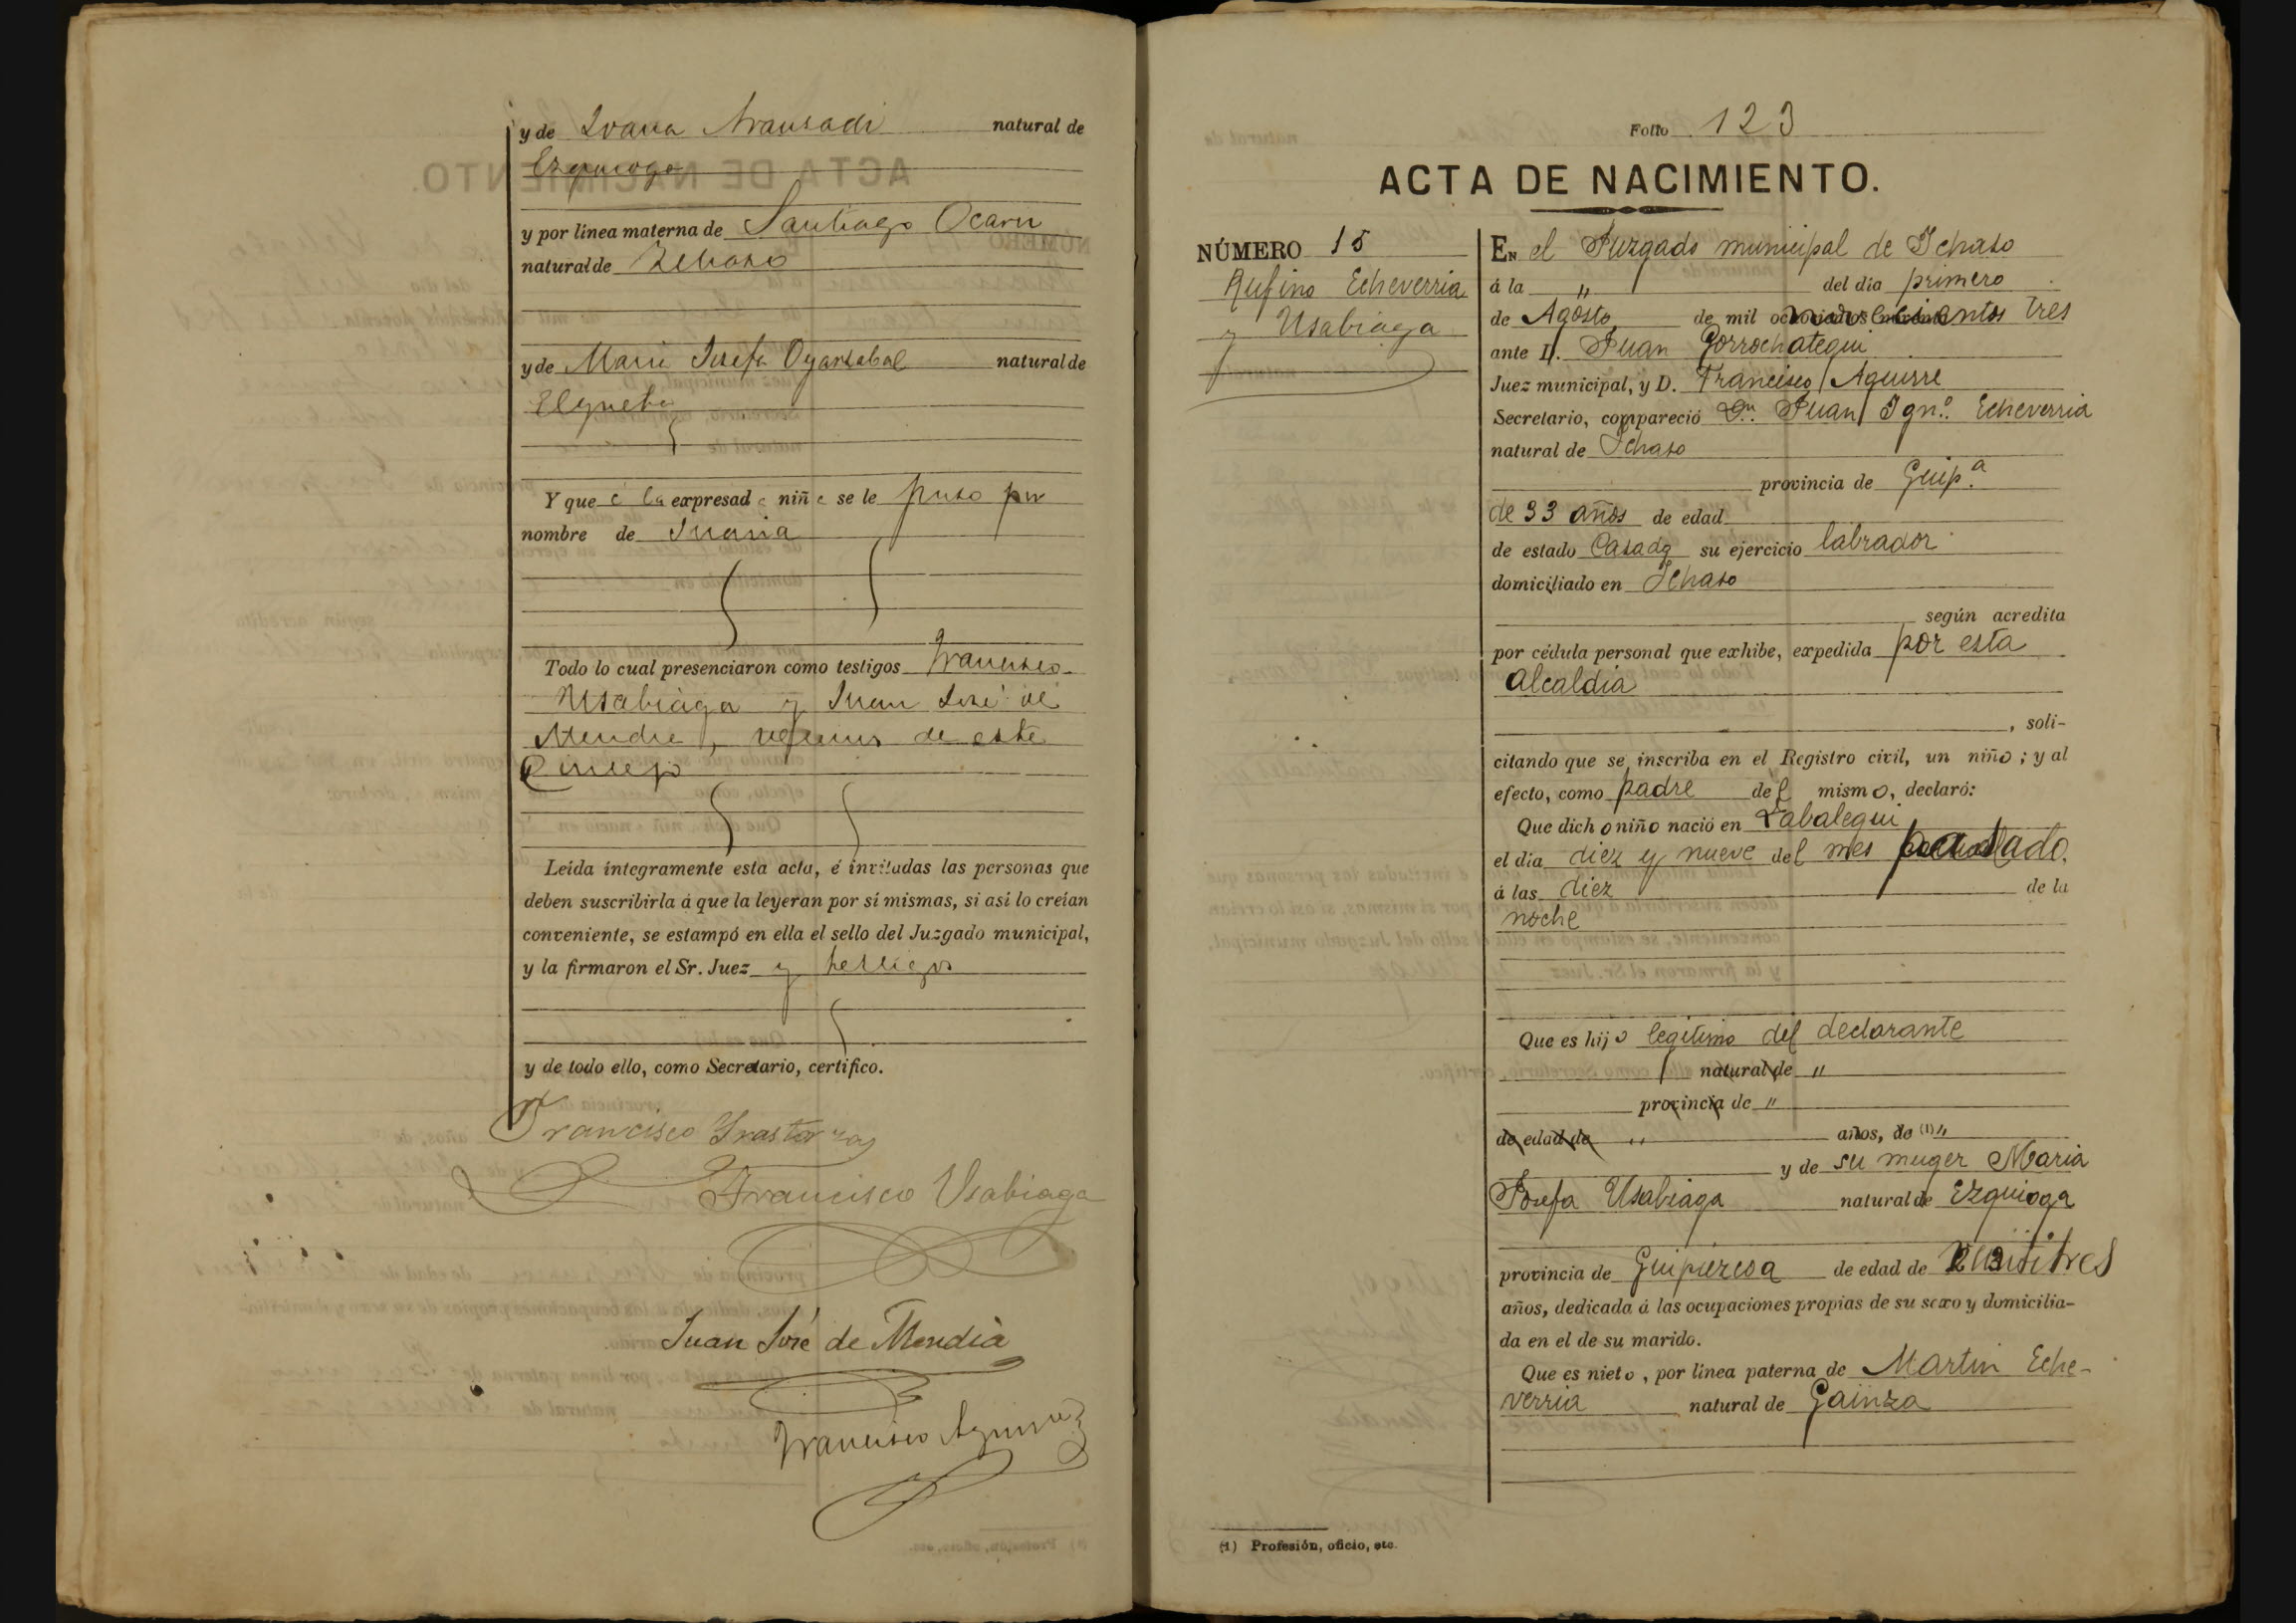 y de Juana Aransadi natural de
Ezquioga
y por línea materna de Santiago Ocariz
natural de Ichaso
y de Maria Josefa Oyarzabal natural de
Elgueta
Y que á la expresada niña se le puso por
nombre de Juana
Todo lo cual presenciaron como testigos Francisco
Usabiaga y Juan José de
Mendia, vecinos de este
Concejo
Leída íntegramente esta acta, é invitadas las personas que
deben suscribirla á que la leyeran por sí mismas, si así lo creían
conveniente, se estampó en ella el sello del Juzgado municipal,
y la firmaron el Sr. Juez y testigos
y de todo ello, como Secretario, certifico.
Francisco Irastorza
Francisco Usabiaga
Juan José de Mendia
Francisco Aguirre
Folio 123
ACTA DE NACIMIENTO.
NÚMERO 15
Rufino Echeverria
y Usabiaga
EN el Juzgado municipal de Ichaso
á la " del día primero
de Agosto de mil novecientos tres
ante D. Juan Gorrochategui
Juez municipal, y D. Francisco Aguirre
Secretario, compareció Dn. Juan Ign.º Echeverria
natural de Ichaso
provincia de Guip.ª
de 33 años de edad
de estado Casado su ejercicio labrador
domiciliado en Ichaso
según acredita
por cédula personal que exhibe, expedida por esta
alcaldia
, soli-
citando que se inscriba en el Registro civil, un niño; y al
efecto, como padre del mismo, declaró:
Que dicho niño nació en Zabalegui
el día diez y nueve del mes pasado.
á las diez de la
noche
Que es hijo legitimo del declarante
natural de "
provincia de "
de edad de " años, de (1) "
y de su muger Maria
Josefa Usabiaga natural de Ezquioga
provincia de Guipuzcoa de edad de veintitres
años, dedicada á las ocupaciones propias de su sexo y domicilia-
da en el de su marido.
Que es nieto, por línea paterna de Martin Eche-
verria natural de Gainza
(1) Profesión, oficio, etc.